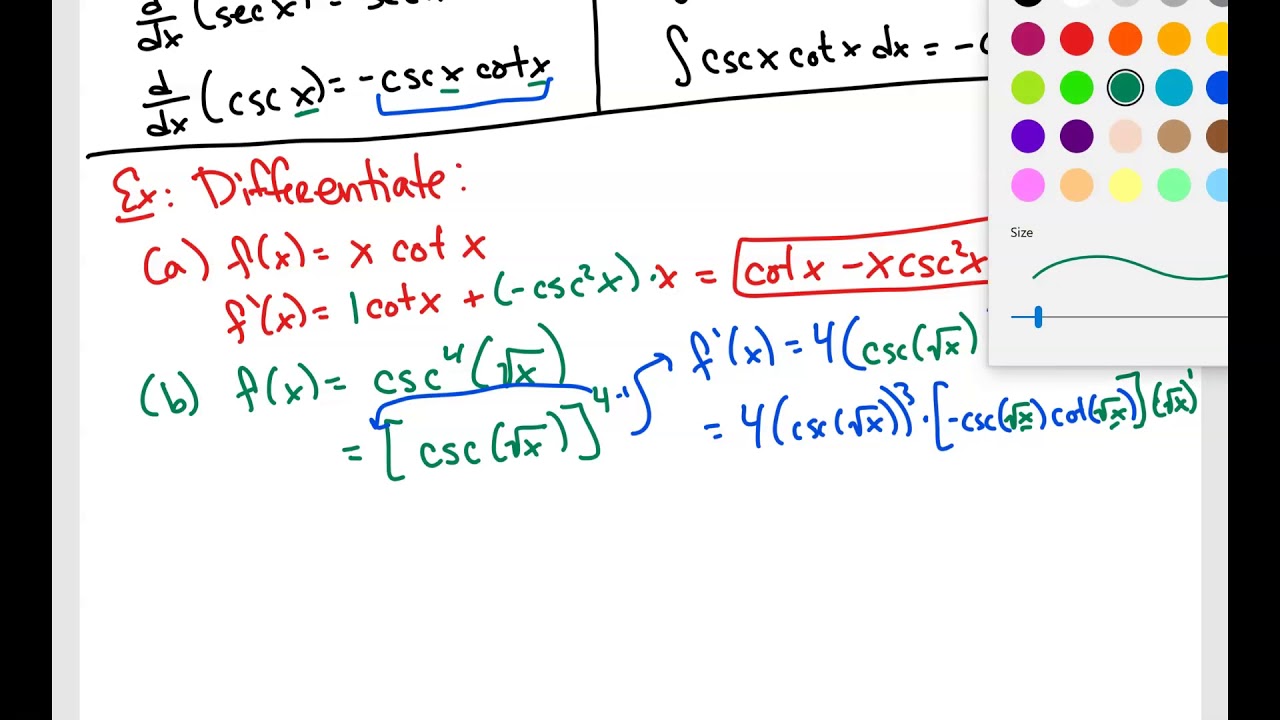 d/dx (sec x) = sec
d/dx (csc x) = -csc x cot x
∫ csc x cot x dx = -c
Ex: Differentiate:
(a) f(x) = x cot x
f'(x) = 1 cot x + (-csc²x) · x = cot x - x csc²x
(b) f(x) = csc⁴(√x)
= [csc(√x)]⁴⁻¹
f'(x) = 4(csc(√x)
= 4(csc(√x))³ · [-csc(√x) cot(√x)] (√x)'
Size